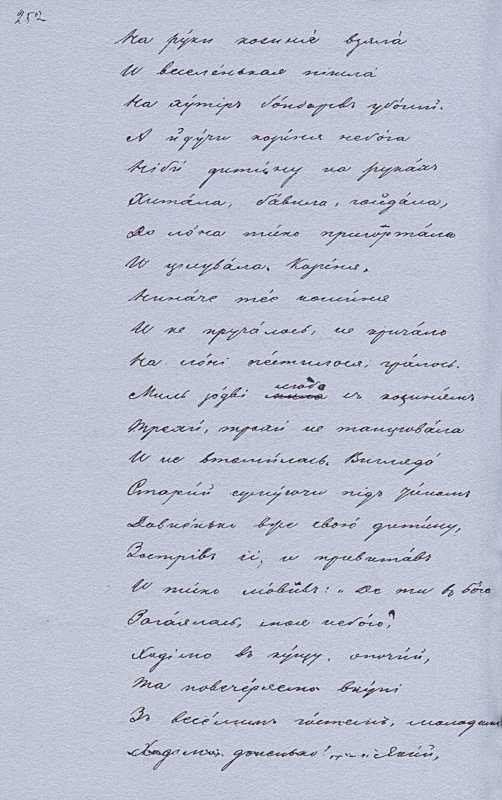 252
На ру́ки козиня́ взяла́
И веселе́нькая пішла́
На ху́тіръ бо́ндарівъ убо́гий.
А йдучи́ козе́ня небо́га
Ніби́ дити́ну на рука́хъ
Хита́ла, ба́вила, гойда́ла,
До ло́на ти́хо пригорта́ла
И цілува́ла. Козе́ня,
Нина́че те́є коша́ня
И не пруча́лось, не крича́ло
На ло́ні пе́стилося, гра́лось.
Миль зо́дві люба зъ козиня́мъ
Трохи́, трохи́ не танцюва́ла
И не втоми́лась. Вигляда́
Стари́й суму́ючи підъ ти́номъ
Давне́нько вже свою́ дити́ну,
Зострі́въ її, и привита́въ
И ти́хо мо́вивъ: „ Де ти въ бо́га
Заґая́лась, моя небо́го?
Ході́мо въ ку́щу, опочи́й,
Та повече́ряємо вку́пі
Зъ весе́лимъ го́стемъ, молоди́мъ
Ході́мо доненько!